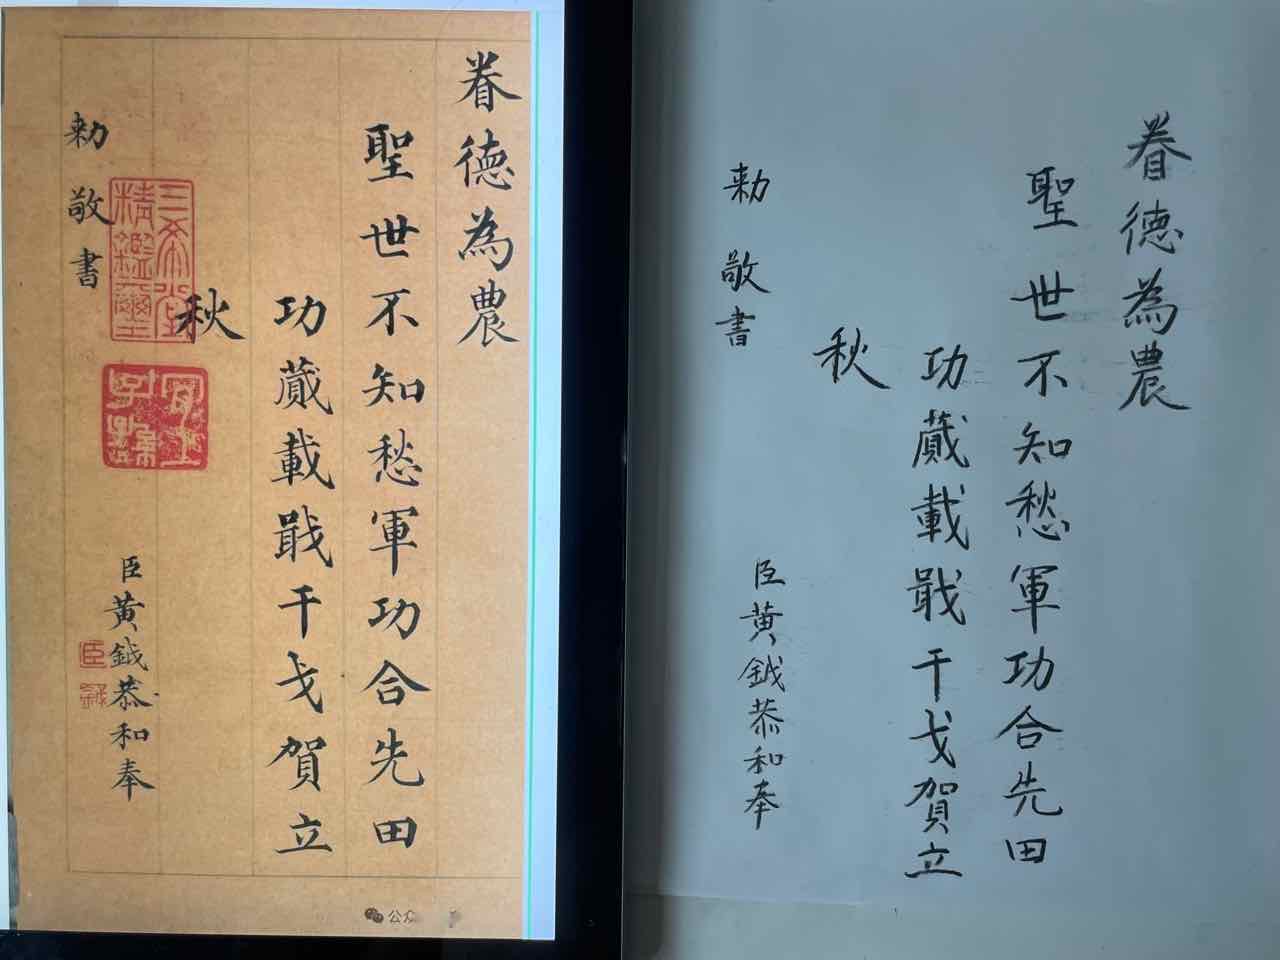 眷德為農
聖世不知愁軍功合先田
功蕆載戢干戈賀立
秋
三希堂
精鑑璽
宜
子孫
臣黃鉞恭和奉
勑敬書
臣
鉞
公众
眷德為農
聖世不知愁軍功合先田
功蕆載戢干戈賀立
秋
臣黃鉞恭和奉
勑敬書